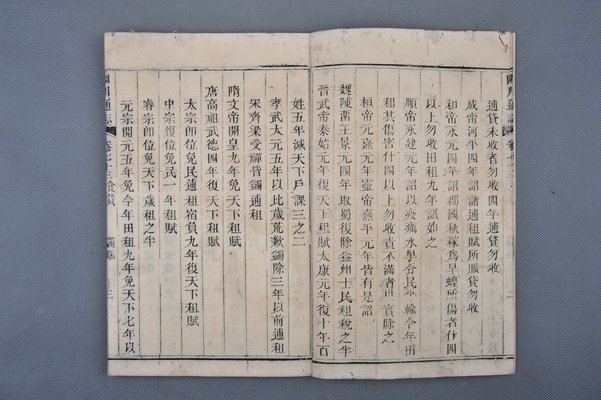 逋貸未收者勿收四年逋貸勿收
成帝河平四年詔諸逋租賦所賑貸勿收
和帝永元四年詔郡國秋稼為旱蝗所傷者什四
以上勿收田租九年詔如之
順帝永建元年詔以疫癘水潦令民半輸今年田
租其傷害什四以上勿收責不滿者以實除之
桓帝元嘉元年靈帝熹平元年皆有是詔
魏陳留王景元四年取蜀復除益州士民租稅之半
晉武帝泰始元年復天下租賦太康元年復十年百
姓五年減天下戶課三之二
孝武太元五年以比歲荒歉蠲除三年以前逋租
宋齊梁受禪皆蠲逋租
隋文帝開皇九年免天下租賦
唐高祖武德四年復天下租賦
太宗即位免民逋租宿負九年復天下租賦
中宗復位免民一年租賦
睿宗即位免天下歲租之半
元宗開元五年免今年田租九年免天下七年以
四川通志
卷七十三食貨
蠲賑